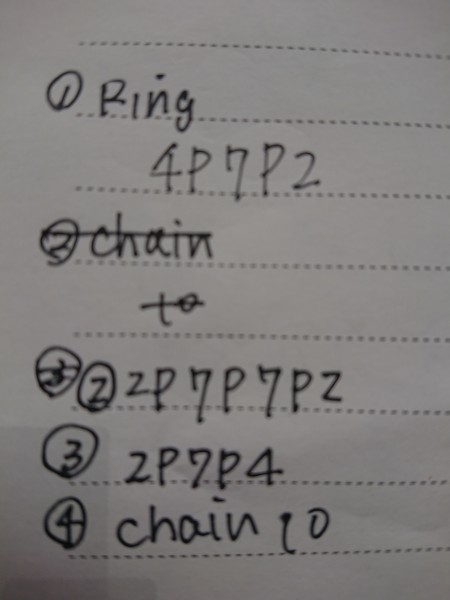 ① Ring
4P7P2
② chain
10
③ ② 2P7P7P2
③ 2P7P4
④ chain 10